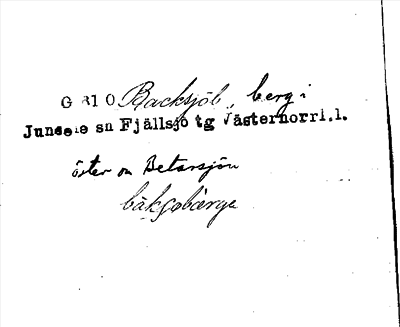 G 81 0 Backsjöb., berg i
Junsele sn Fjällsjö tg Västernorrl.l.
öster om Betarsjön
bàkʃobàrge